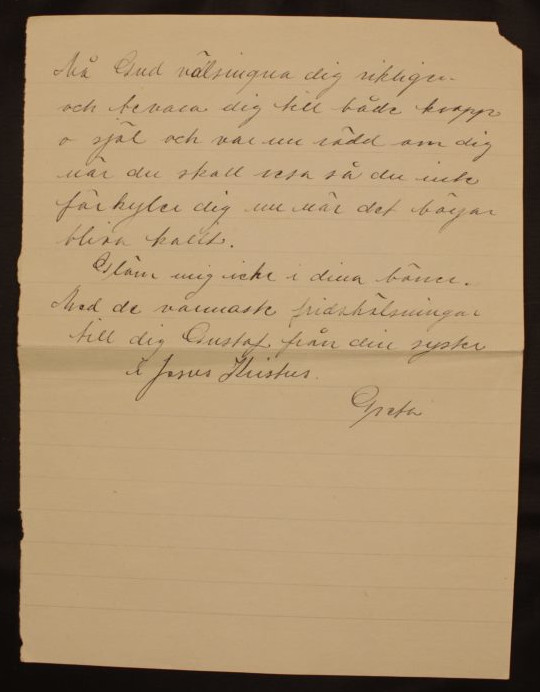 Må Gud välsingna dig rikligen
och bevara dig till både kropp
o själ och var nu rädd om dig
när du skall resa så du inte
förkyler dig nu när det börjar
bliva kallt.
Glöm mig icke i dina böner.
Med de varmaste fridshälsningar
till dig Gustaf från din syster
i Jesus Kristus.
Greta